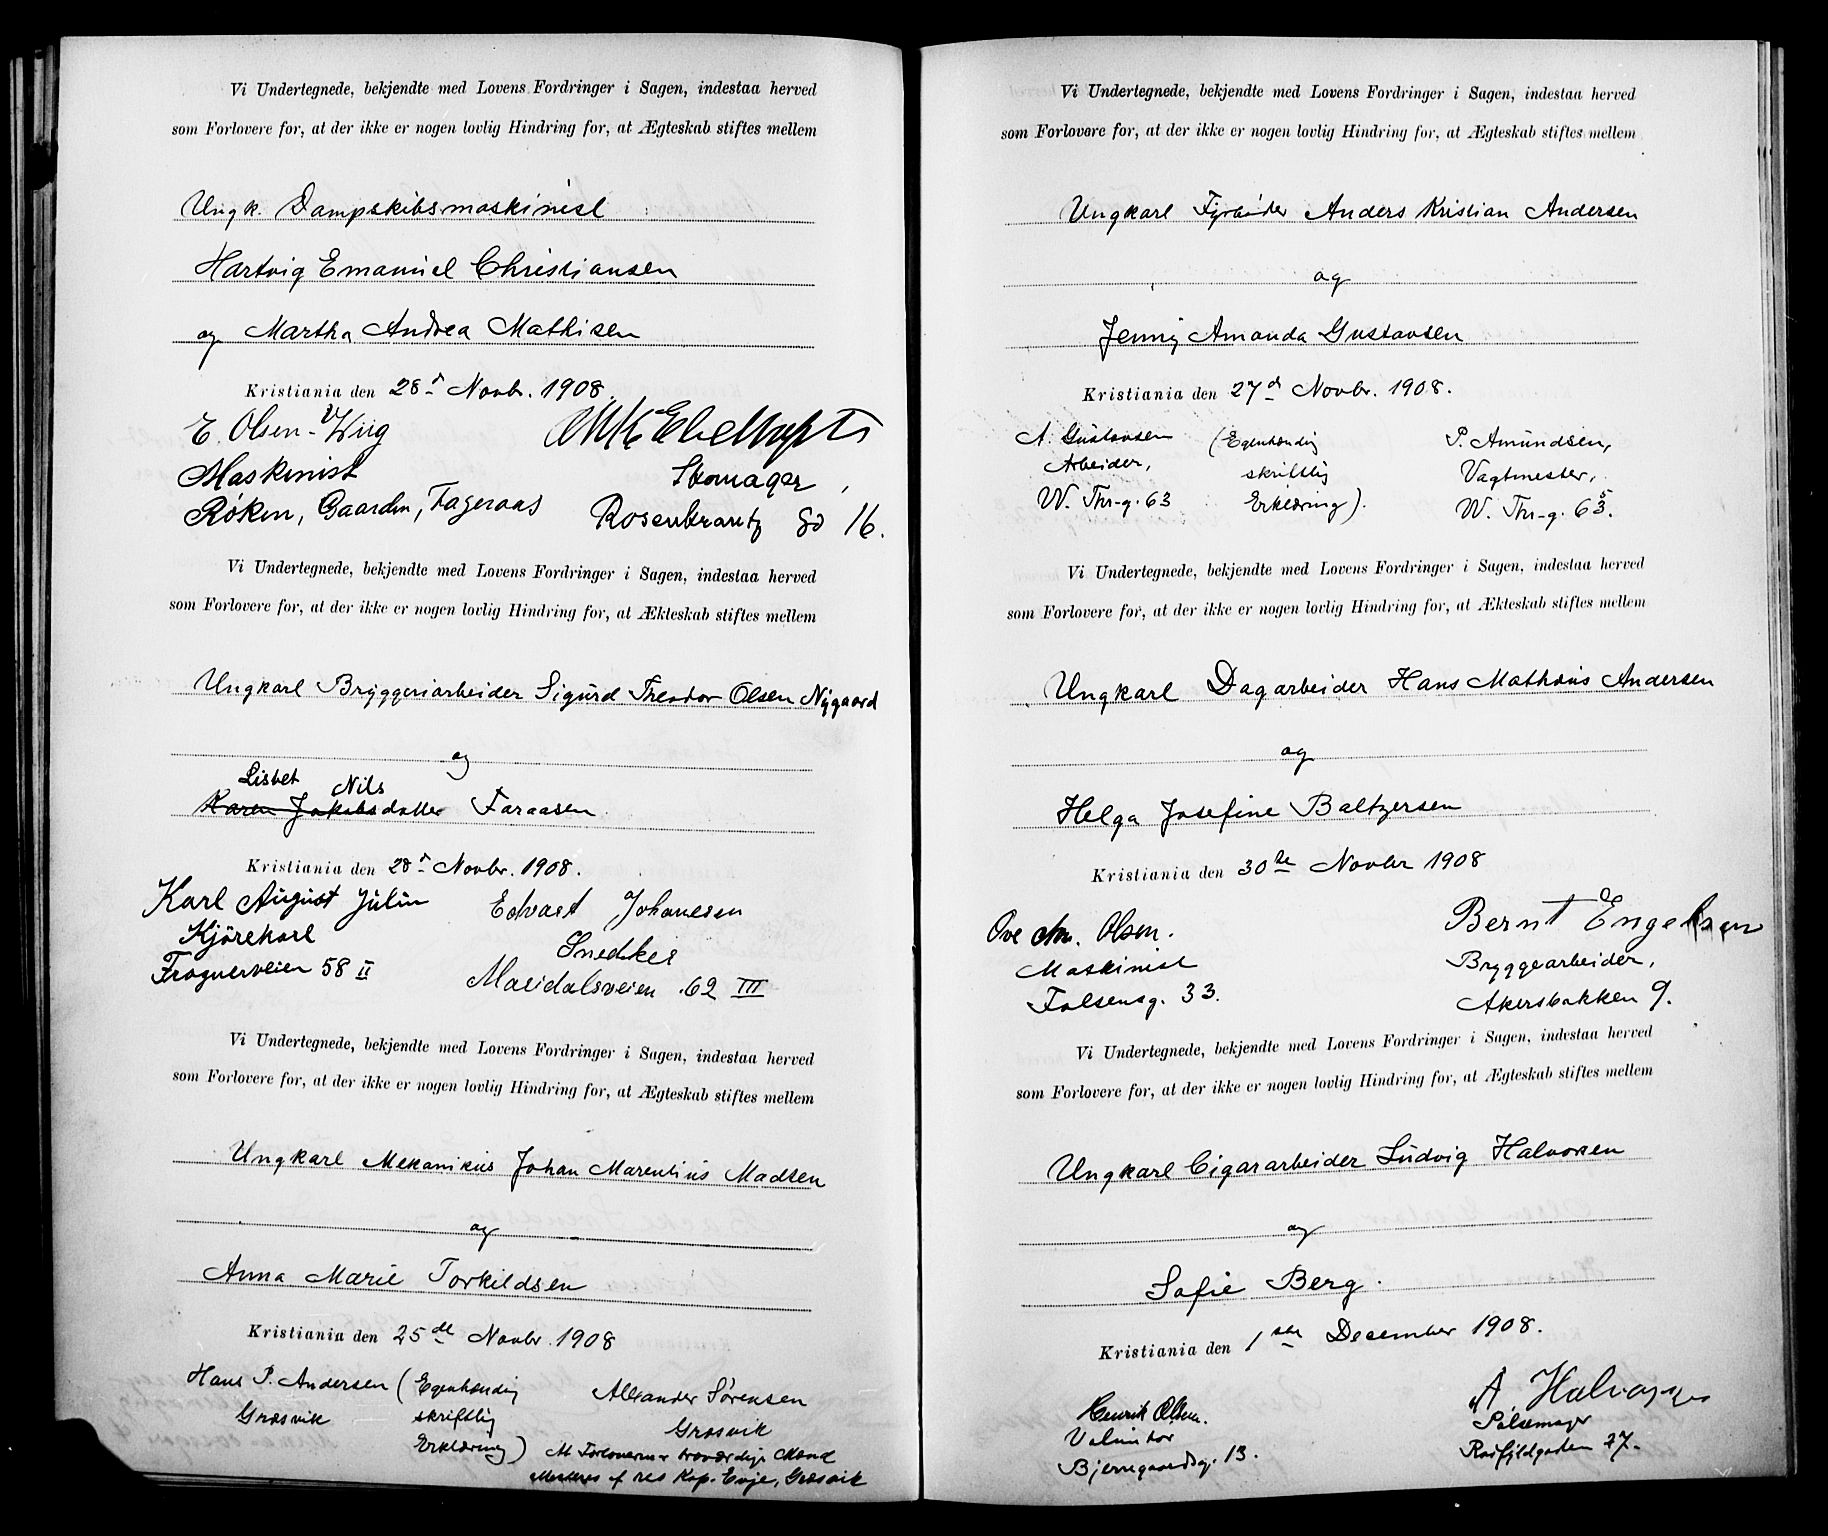 Vi Undertegnede, bekjendte med Lovens Fordringer i Sagen, indestaa herved
som Forlovere for, at der ikke er nogen lovlig Hindring for, at Ægteskab stiftes mellem
Ungk. Dampskibsmaskinist
Hartvig Emanuel Christiansen
og Martha Andrea Mathisen
Kristiania den 28d Novbr. 1908.
E. Olsen-Wiig
Maskinist Skomager
Røken, Gaarden, Fageraas Rosenkrantz gd 16.
Vi Undertegnede, bekjendte med Lovens Fordringer i Sagen, indestaa herved
som Forlovere for, at der ikke er nogen lovlig Hindring for, at Ækteskab stiftes mellem
Ungkarl Bryggeriarbeider Sigurd Theodor Olsen Nygaard
og
Lisbet Nils
Karen Jakobsdatter Faraasen
Kristiania den 28d Novbr. 1908.
Karl August Julin Edvart Johanesen
Kjørekarl Snedker
Frognerveien 58 II Maridalsveien 62 III
Vi Undertegnede, bekjendte med Lovens Fordringer i Sagen, indestaa herved
som Forlovere for, at der ikke er nogen lovlig Hindring for, at Ægteskab stiftes mellem
Ungkarl Mekanikus Johan Marentius Madsen
og
Anna Marie Torkildsen
Kristiania den 25de Novbr. 1908
Hans P. Andersen (Egenhændig Alexander Sørensen
Græsvik skriftlig Græsvik
Erklæring) At Forloverne er troværdige Mænd
af res Kap. Evje, Græsvik
Vi Undertegnede, bekjendte med Lovens Fordringer i Sagen, indestaa herved
som Forlovere for, at der ikke er nogen lovlig Hindring for, at Ægteskab stiftes mellem
Ungkarl Fyrbøder Anders Kristian Andersen
og
Jenny Amanda Gustavsen
Kristiania den 27d Novbr. 1908.
A. Gustavsen (Egenhændig P. Amundsen,
Arbeider, skriftlig Vagtmester,
W. Thr-g. 63 Erklæring). W. Thr-g. 65.
Vi Undertegnede, bekjendte med Lovens Fordringer i Sagen, indestaa herved
som Forlovere for, at der ikke er nogen lovlig Hindring for, at Ækteskab stiftes mellem
Ungkarl Dagarbeider Hans Mathæus Andersen
og
Helga Josefine Baltzersen
Kristiania den 30te Novbr 1908
Ove Chr. Olsen. Bernt Engelsen
Maskinist Bryggearbeider,
Falsensg. 33. Akersbakken 9.
Vi Undertegnede, bekjendte med Lovens Fordringer i Sagen, indestaa herved
som Forlovere for, at der ikke er nogen lovlig Hindring for, at Ægteskab stiftes mellem
Ungkarl Cigararbeider Ludvig Halvorsen
og
Sofie Berg.
Kristiania den 1ste December 1908.
Henrik Olsen. A Halvorsen
Volontør Pølsemager
Bjerregaardsg. 13. Rødfyldgaden 27.